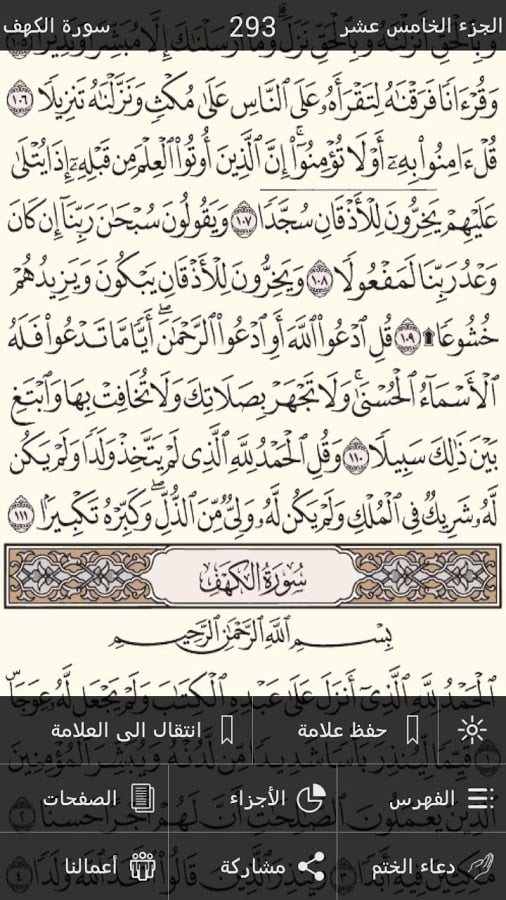 الجزء الخامس عشر 293 سورة الكهف
وَبِالْحَقِّ أَنزَلْنَاهُ وَبِالْحَقِّ نَزَلَ وَمَا أَرْسَلْنَاكَ إِلَّا مُبَشِّرًا وَنَذِيرًا ١٠٥
وَقُرْءَانًا فَرَقْنَاهُ لِتَقْرَأَهُ عَلَى النَّاسِ عَلَىٰ مُكْثٍ وَنَزَّلْنَاهُ تَنزِيلًا ١٠٦
قُلْ ءَامِنُوا بِهِ أَوْ لَا تُؤْمِنُوا إِنَّ الَّذِينَ أُوتُوا الْعِلْمَ مِن قَبْلِهِ إِذَا يُتْلَىٰ
عَلَيْهِمْ يَخِرُّونَ لِلْأَذْقَانِ سُجَّدًا ١٠٧ وَيَقُولُونَ سُبْحَانَ رَبِّنَا إِن كَانَ
وَعْدُ رَبِّنَا لَمَفْعُولًا ١٠٨ وَيَخِرُّونَ لِلْأَذْقَانِ يَبْكُونَ وَيَزِيدُهُمْ
خُشُوعًا ۩ ١٠٩ قُلِ ادْعُوا اللَّهَ أَوِ ادْعُوا الرَّحْمَٰنَ أَيًّا مَّا تَدْعُوا فَلَهُ
الْأَسْمَاءُ الْحُسْنَىٰ وَلَا تَجْهَرْ بِصَلَاتِكَ وَلَا تُخَافِتْ بِهَا وَابْتَغِ
بَيْنَ ذَٰلِكَ سَبِيلًا ١١٠ وَقُلِ الْحَمْدُ لِلَّهِ الَّذِي لَمْ يَتَّخِذْ وَلَدًا وَلَمْ يَكُن
لَّهُ شَرِيكٌ فِي الْمُلْكِ وَلَمْ يَكُن لَّهُ وَلِيٌّ مِّنَ الذُّلِّ وَكَبِّرْهُ تَكْبِيرًا ١١١
سُورَةُ الْكَهْفِ
بِسْمِ اللَّهِ الرَّحْمَٰنِ الرَّحِيمِ
الْحَمْدُ لِلَّهِ الَّذِي أَنزَلَ عَلَىٰ عَبْدِهِ الْكِتَابَ وَلَمْ يَجْعَل لَّهُ عِوَجًا
حفظ علامة انتقال الى العلامة
١ قَيِّمًا لِّيُنذِرَ بَأْسًا شَدِيدًا مِّن لَّدُنْهُ وَيُبَشِّرَ الْمُؤْمِنِينَ
الفهرس الأجزاء الصفحات
الَّذِينَ يَعْمَلُونَ الصَّالِحَاتِ أَنَّ لَهُمْ أَجْرًا حَسَنًا ٢
دعاء الختم مشاركة أعمالنا
مَّاكِثِينَ فِيهِ أَبَدًا ٣ وَيُنذِرَ الَّذِينَ قَالُوا اتَّخَذَ اللَّهُ وَلَدًا ٤